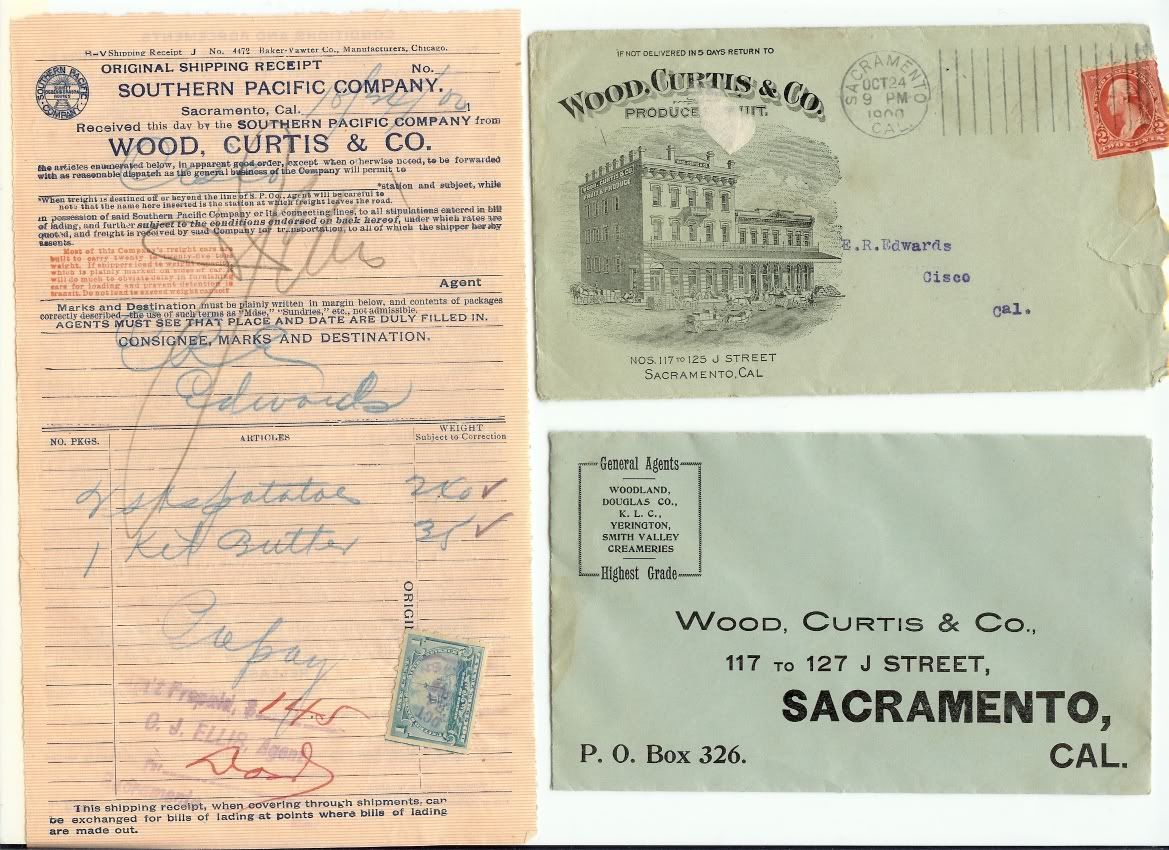 B-V Shipping Receipt J No. 4472 Baker-Vawter Co., Manufacturers, Chicago.
ORIGINAL SHIPPING RECEIPT No.
SOUTHERN PACIFIC COMPANY.
SOUTHERN PACIFIC COMPANY
Sacramento, Cal. 10/24/00
Received this day by the SOUTHERN PACIFIC COMPANY from
WOOD, CURTIS & CO.
the articles enumerated below, in apparent good order, except when otherwise noted, to be forwarded
with as reasonable dispatch as the general business of the Company will permit to
Cisco *station and subject, while
*When freight is destined off or beyond the line of S. P. Co., Agent will be careful to
note that the name here inserted is the station at which freight leaves the road.
in possession of said Southern Pacific Company or its connecting lines, to all stipulations entered in bill
of lading, and further subject to the conditions endorsed on back hereof, under which rates are
quoted, and freight is received by said Company for transportation, to all of which the shipper hereby
assents.
Most of this Company's freight cars are
built to carry twenty to twenty-five tons
weight. If shippers load to weight capacity
which is plainly marked on sides of car, it
will do much to obviate delay in furnishing
cars for loading and prevent detention in
transit. Do not load to exceed weight capacity
Agent
Marks and Destination must be plainly written in margin below, and contents of packages
correctly described—the use of such terms as "Mdse," "Sundries," etc., not admissible.
AGENTS MUST SEE THAT PLACE AND DATE ARE DULY FILLED IN.
CONSIGNEE, MARKS AND DESTINATION.
E R
Edwards
NO. PKGS. ARTICLES WEIGHT
Subject to Correction
2 sks potatoes 240 ✓
1 Kit Butter 35 ✓
ORIGI
Prepay
Prepaid, $ 1.45
O. J. ELLIS, Agent
This shipping receipt, when covering through shipments, can
be exchanged for bills of lading at points where bills of lading
are made out.
IF NOT DELIVERED IN 5 DAYS RETURN TO
WOOD, CURTIS & CO.
PRODUCE
NOS. 117 TO 125 J STREET
SACRAMENTO, CAL
SACRAMENTO
OCT 24
9 PM
1900
CAL.
TWO CENTS
E.R.Edwards
Cisco
Cal.
General Agents
WOODLAND,
DOUGLAS CO.,
K. L. C.,
YERINGTON,
SMITH VALLEY
CREAMERIES
Highest Grade
WOOD, CURTIS & CO.,
117 TO 127 J STREET,
SACRAMENTO,
P. O. Box 326. CAL.